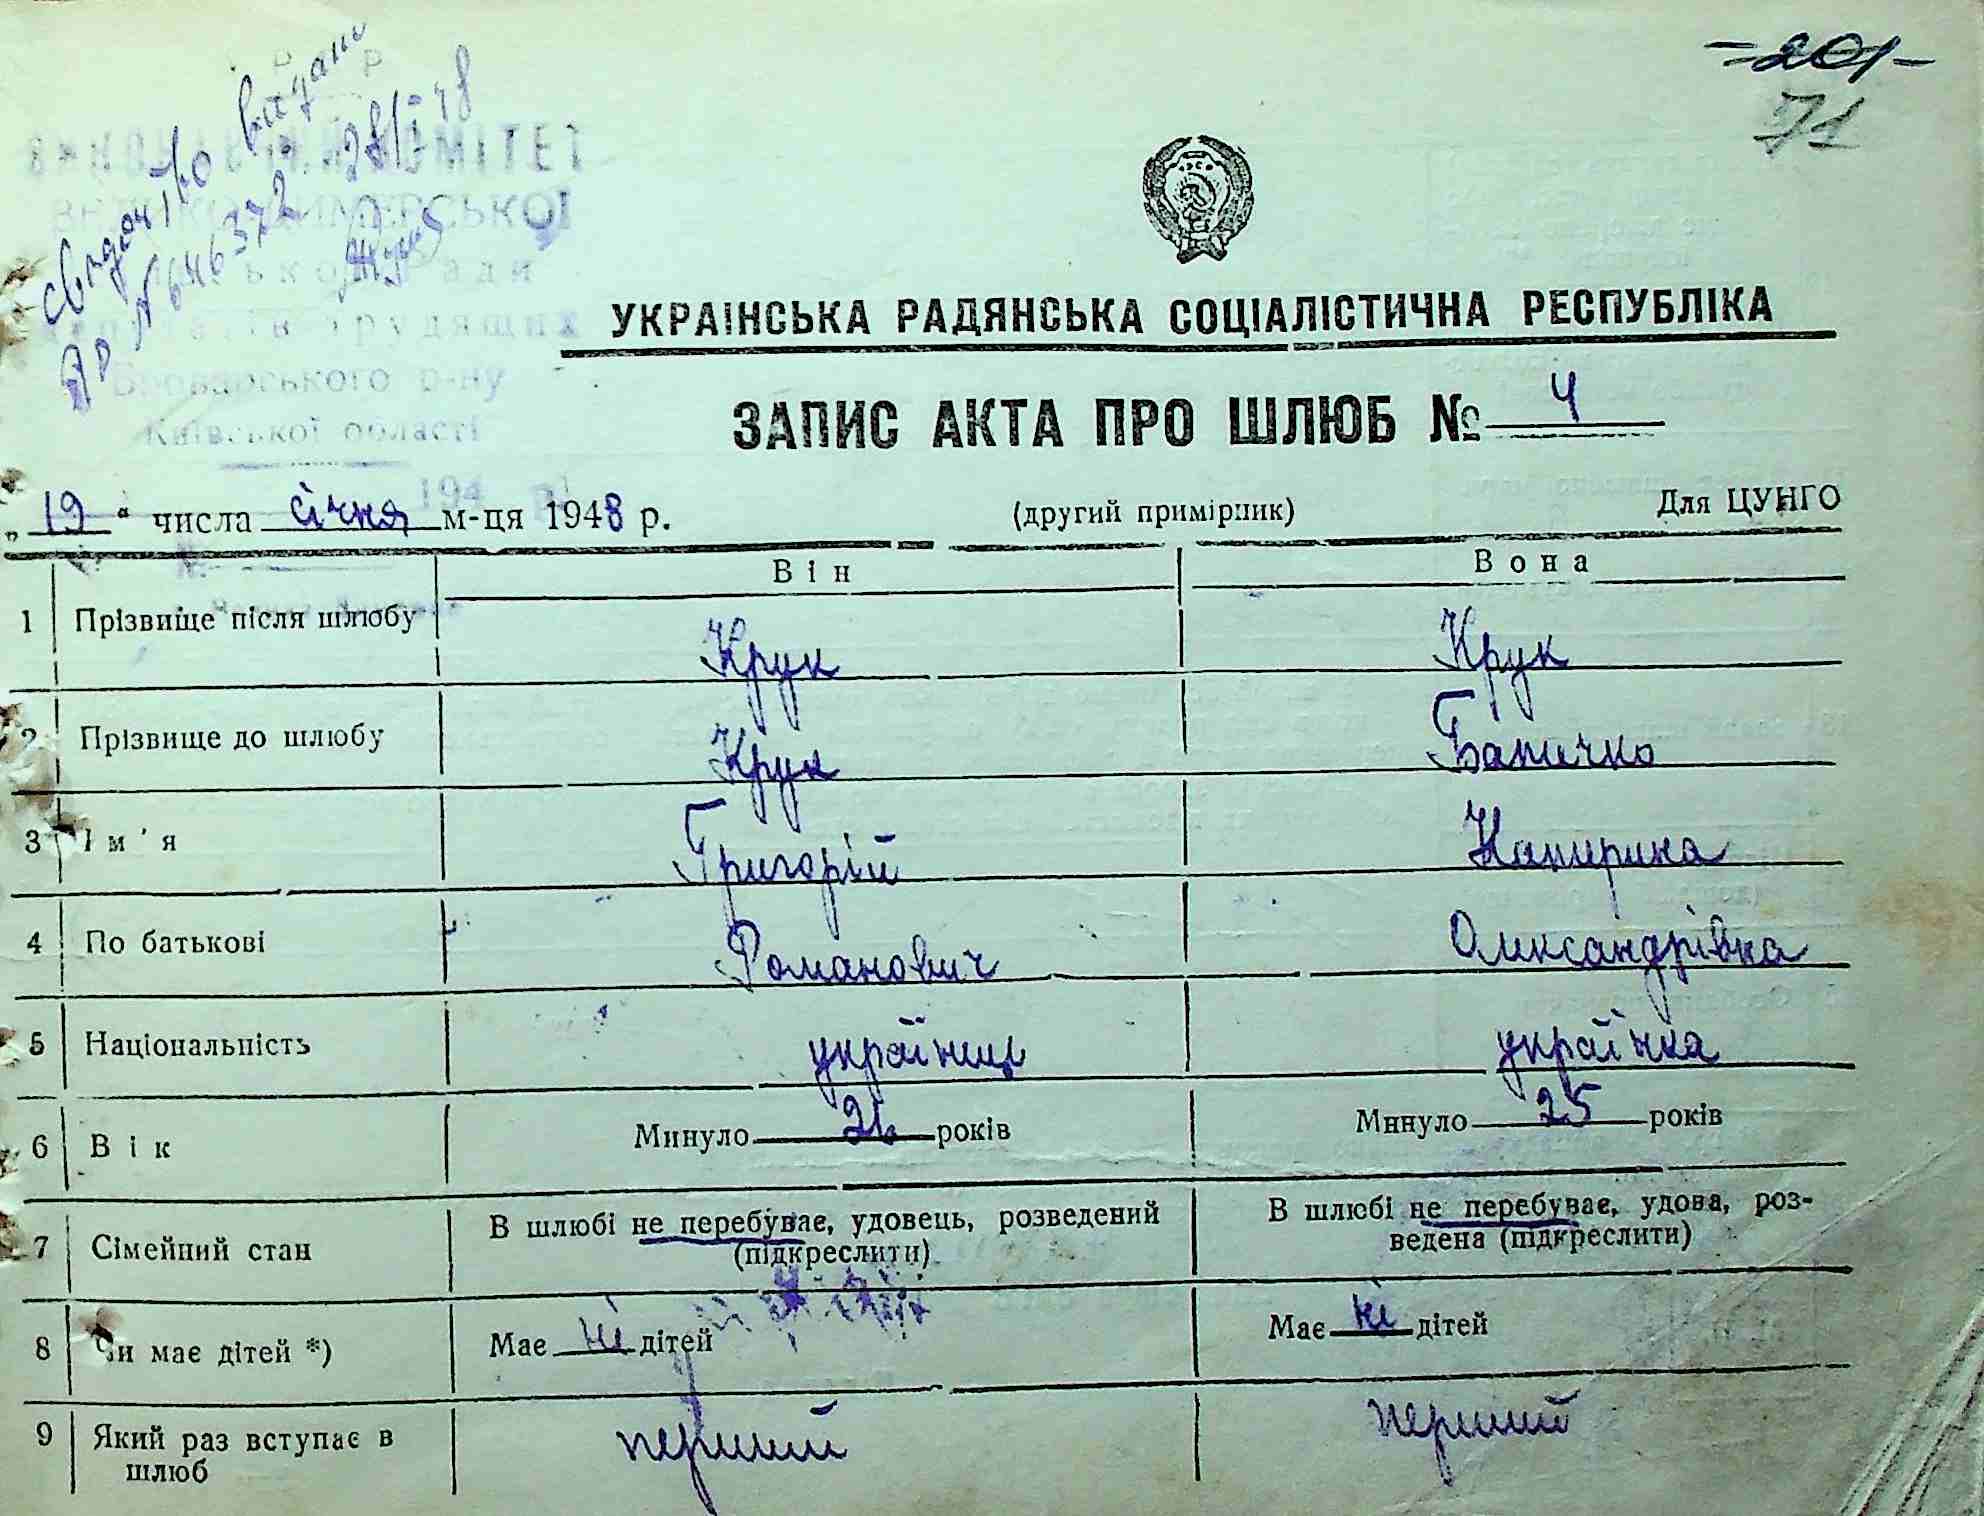 -201-
71
свидоцтво видано
№ 646372 28/I 48
ВИКОНАВЧИЙ КОМІТЕТ
ВЕЛИКОДИМЕРСЬКОЇ
Ради
трудящих
Броварського р-ну
Київської області
194 р.
УКРАІНСЬКА РАДЯНСЬКА СОЦІАЛІСТИЧНА РЕСПУБЛІКА
ЗАПИС АКТА ПРО ШЛЮБ № 4
„19“ числа січня м-ця 1948 р. (другий примірник) Для ЦУНГО
Він Вона
1 Прізвище після шлюбу Крук Крук
2 Прізвище до шлюбу Крук
3 Ім'я Григорій Катирина
4 По батькові Романович Олександрівна
5 Національність українець українка
6 Вік Минуло років Минуло 25 років
7 Сімейний стан В шлюбі не перебуває, удовець, розведений (підкреслити) В шлюбі не перебуває, удова, роз-
ведена (підкреслити)
8 Чи має дітей *) Має ні дітей Має ні дітей
9 Який раз вступає в перший перший
шлюб